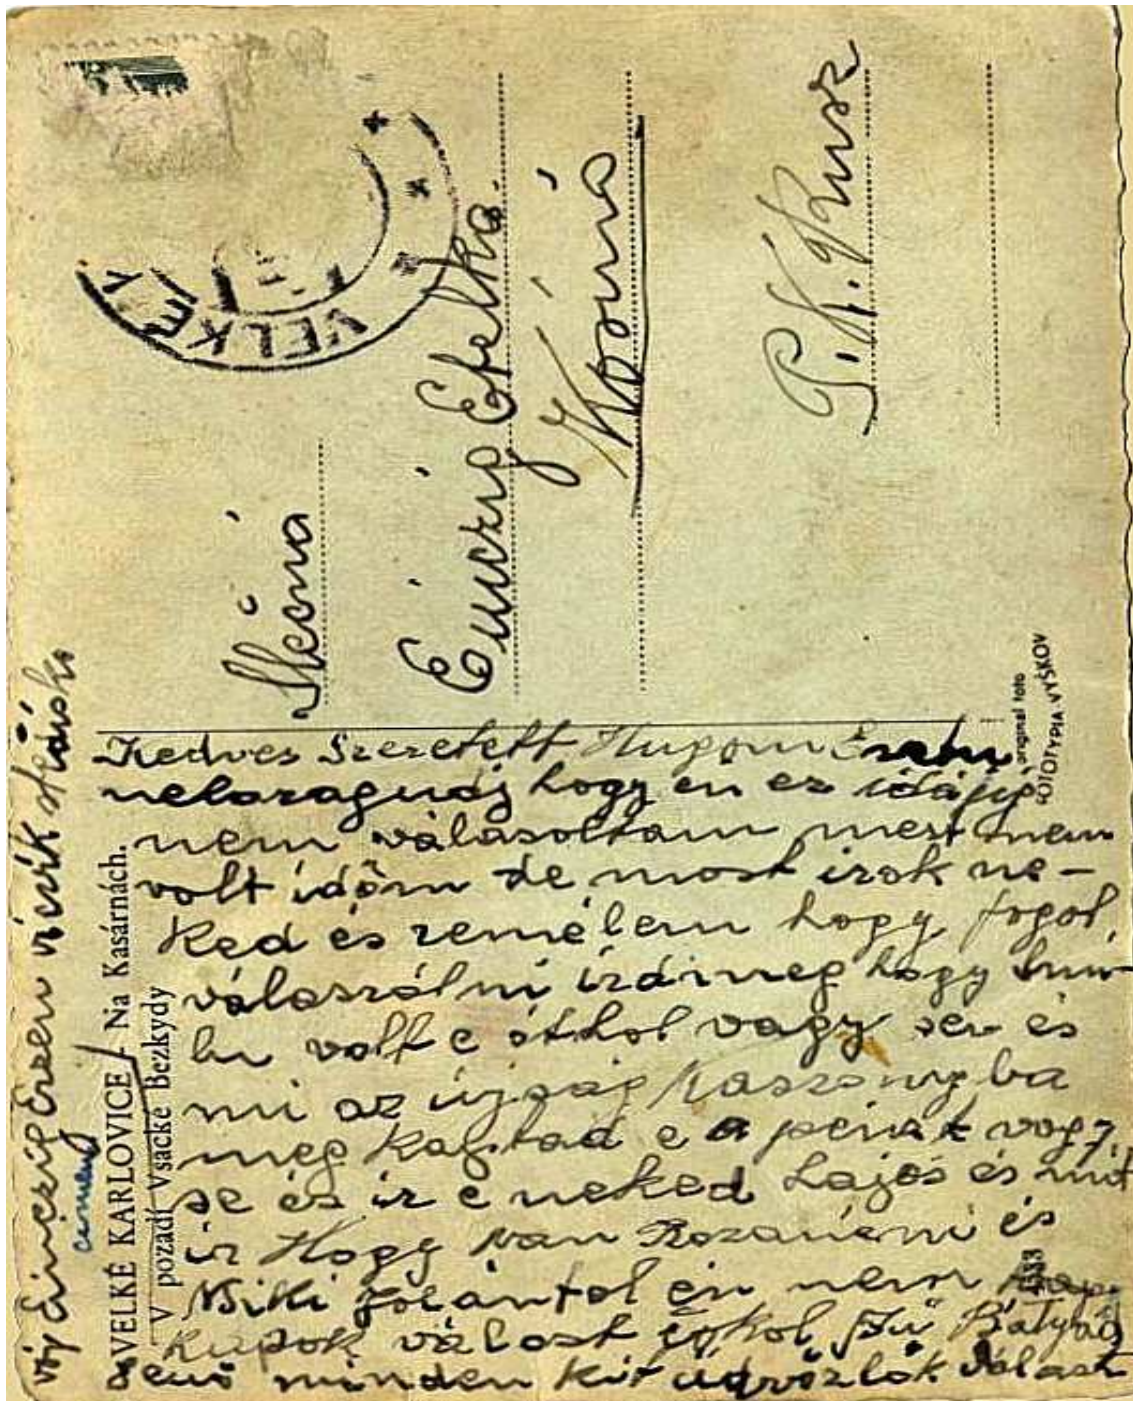 VELKÉ KARLOVICE - Na Kasárnách.
V pozadí Vsacké Bezkydy
VELKÉ
Slečna
Etelka
P. K. Rusz
original foto
FOTOTYPIA VYŠKOV
Kedves Szeretett Hugom
neharagudj hogy én ez idájig
nem válasoltam mert nem
volt időm de most irok ne-
ked és remélem hogy fogol
válaszólni irdmeg hogy
volt e otthol vagy se és
mi az újság Kaszonyba
meg kaptad e a pénzt vagy
se és ir e neked Lajos és mit
ir Hogy van és
Miki Jolántol én nem
kapok válast Bátyád
Jenö minden kit üdvözlök Válast